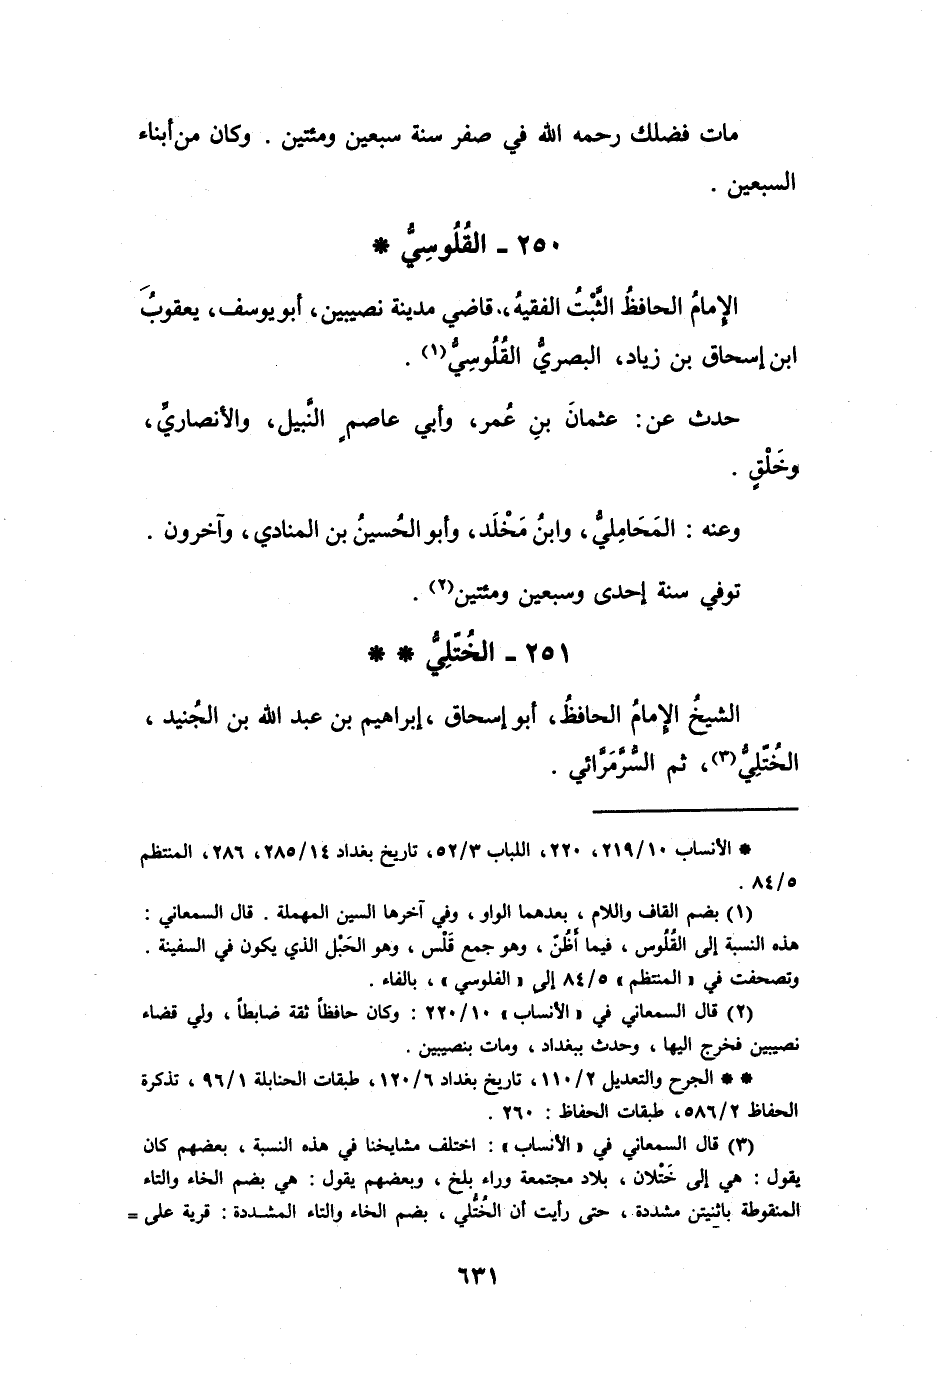 مات فضلك رحمه الله في صفر سنة سبعين ومئتين . وكان من أبناء
السبعين .
٢٥٠ ـ القُلُوسِيُّ *
الإِمامُ الحافظُ الثَّبْتُ الفقيهُ، قاضي مدينة نصيبين، أبو يوسف، يعقوبُ
ابن إسحاق بن زياد، البصريُّ القُلُوسِيُّ(١) .
حدث عن: عثمانَ بنِ عُمر، وأبي عاصمٍ النَّبيل، والأنصاريِّ،
وخَلْقٍ .
وعنه : المَحَامِليُّ، وابنُ مَخْلَد، وأبو الحُسينُ بن المنادي، وآخرون .
توفي سنة إحدى وسبعين ومئتين(٢) .
٢٥١ ـ الخُتَّلِيُّ * *
الشيخُ الإِمامُ الحافظُ، أبو إسحاق ،إبراهيم بن عبد الله بن الجُنيد ،
الخُتَّلِيُّ(٣)، ثم السُّرَّمَرَّائي .
* الأنساب ٢١٩/١٠، ٢٢٠، اللباب ٥٢/٣، تاريخ بغداد ٢٨٥/١٤، ٢٨٦، المنتظم
٨٤/٥ .
(١) بضم القاف واللام ، بعدهما الواو ، وفي آخرها السين المهملة . قال السمعاني :
هذه النسبة إلى القُلُوس ، فيما أَظُنّ ، وهو جمع قَلْس ، وهو الحَبْل الذي يكون في السفينة .
وتصحفت في « المنتظم » ٨٤/٥ إلى « الفلوسي » ، بالفاء .
(٢) قال السمعاني في « الأنساب » ٢٢٠/١٠ : وكان حافظاً ثقة ضابطاً ، ولي قضاء
نصيبين فخرج اليها ، وحدث ببغداد ، ومات بنصيبين .
* * الجرح والتعديل ١١٠/٢، تاريخ بغداد ١٢٠/٦، طبقات الحنابلة ٩٦/١ ، تذكرة
الحفاظ ٥٨٦/٢، طبقات الحفاظ : ٢٦٠ .
(٣) قال السمعاني في « الأنساب » : اختلف مشايخنا في هذه النسبة ، بعضهم كان
يقول : هي إلى خَتْلان ، بلاد مجتمعة وراء بلخ ، وبعضهم يقول : هي بضم الخاء والتاء
المنقوطة باثنيتن مشددة ، حتى رأيت أن الخُتُّلي ، بضم الخاء والتاء المشددة : قرية على =
٦٣١